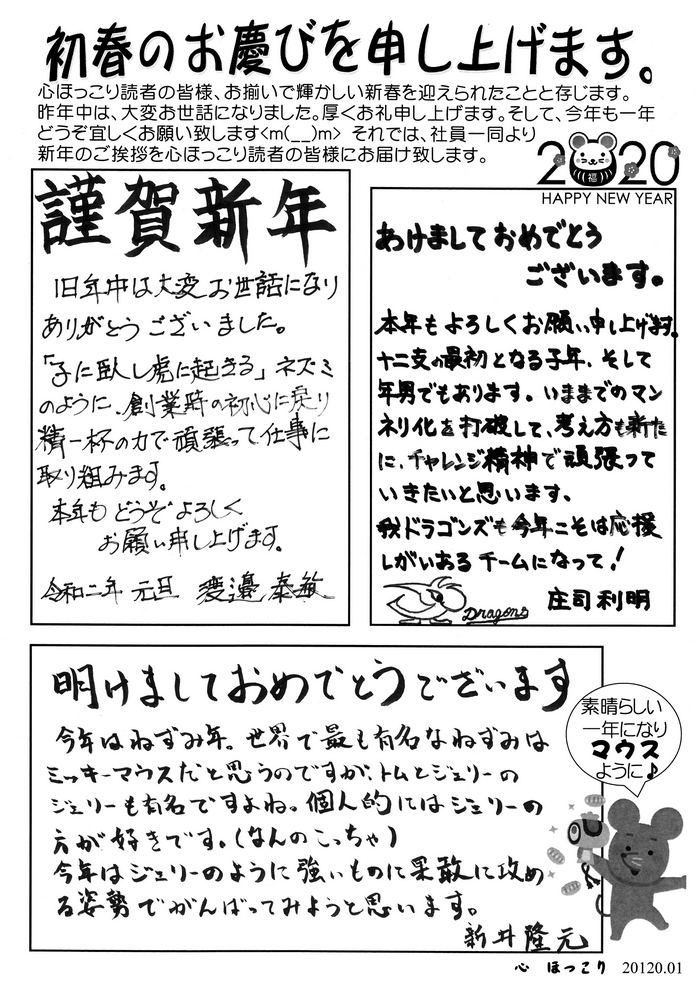 初春のお慶びを申し上げます。
心ほっこり読者の皆様、お揃いで輝かしい新春を迎えられたことと存じます。
昨年中は、大変お世話になりました。厚くお礼申し上げます。そして、今年も一年
どうぞ宜しくお願い致します<m(__)m> それでは、社員一同より
新年のご挨拶を心ほっこり読者の皆様にお届け致します。
2020
福
HAPPY NEW YEAR
謹賀新年
旧年中は大変お世話になり
ありがとうございました。
「子に臥し虎に起きる」ネズミ
のように、創業時の初心に戻り
精一杯の力で頑張って仕事に
取り組みます。
本年もどうぞよろしく
お願い申し上げます。
令和二年 元旦 渡邉 泰敏
あけましておめでとう
ございます。
本年もよろしくお願い申し上げます。
十二支の最初となる子年、そして
年男でもあります。いままでのマン
ネリ化を打破して、考え方も新た
に、チャレンジ精神で頑張って
いきたいと思います、
我ドラゴンズも今年こそは応援
しがいあるチームになって!
Dragons
庄司利明
明けましておめでとうございます
今年はねずみ年。世界で最も有名なねずみは
ミッキーマウスだと思うのですが、トムとジェリーの
ジェリーも有名ですよね。個人的にはジェリーの
方が好きです。(なんのこっちゃ)
今年はジェリーのように強いものに果敢に攻め
る姿勢でがんばってみようと思います。
新井隆元
素晴らしい
一年になり
マウス
ように♪
心 ほっこり 20120.01